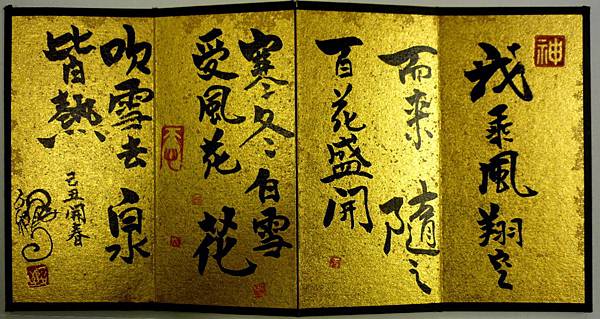 神
我乘風翔空
而来隨之
百花盛開
寒冬白雪
受風花花
吹雪去泉
皆熱
己丑開春